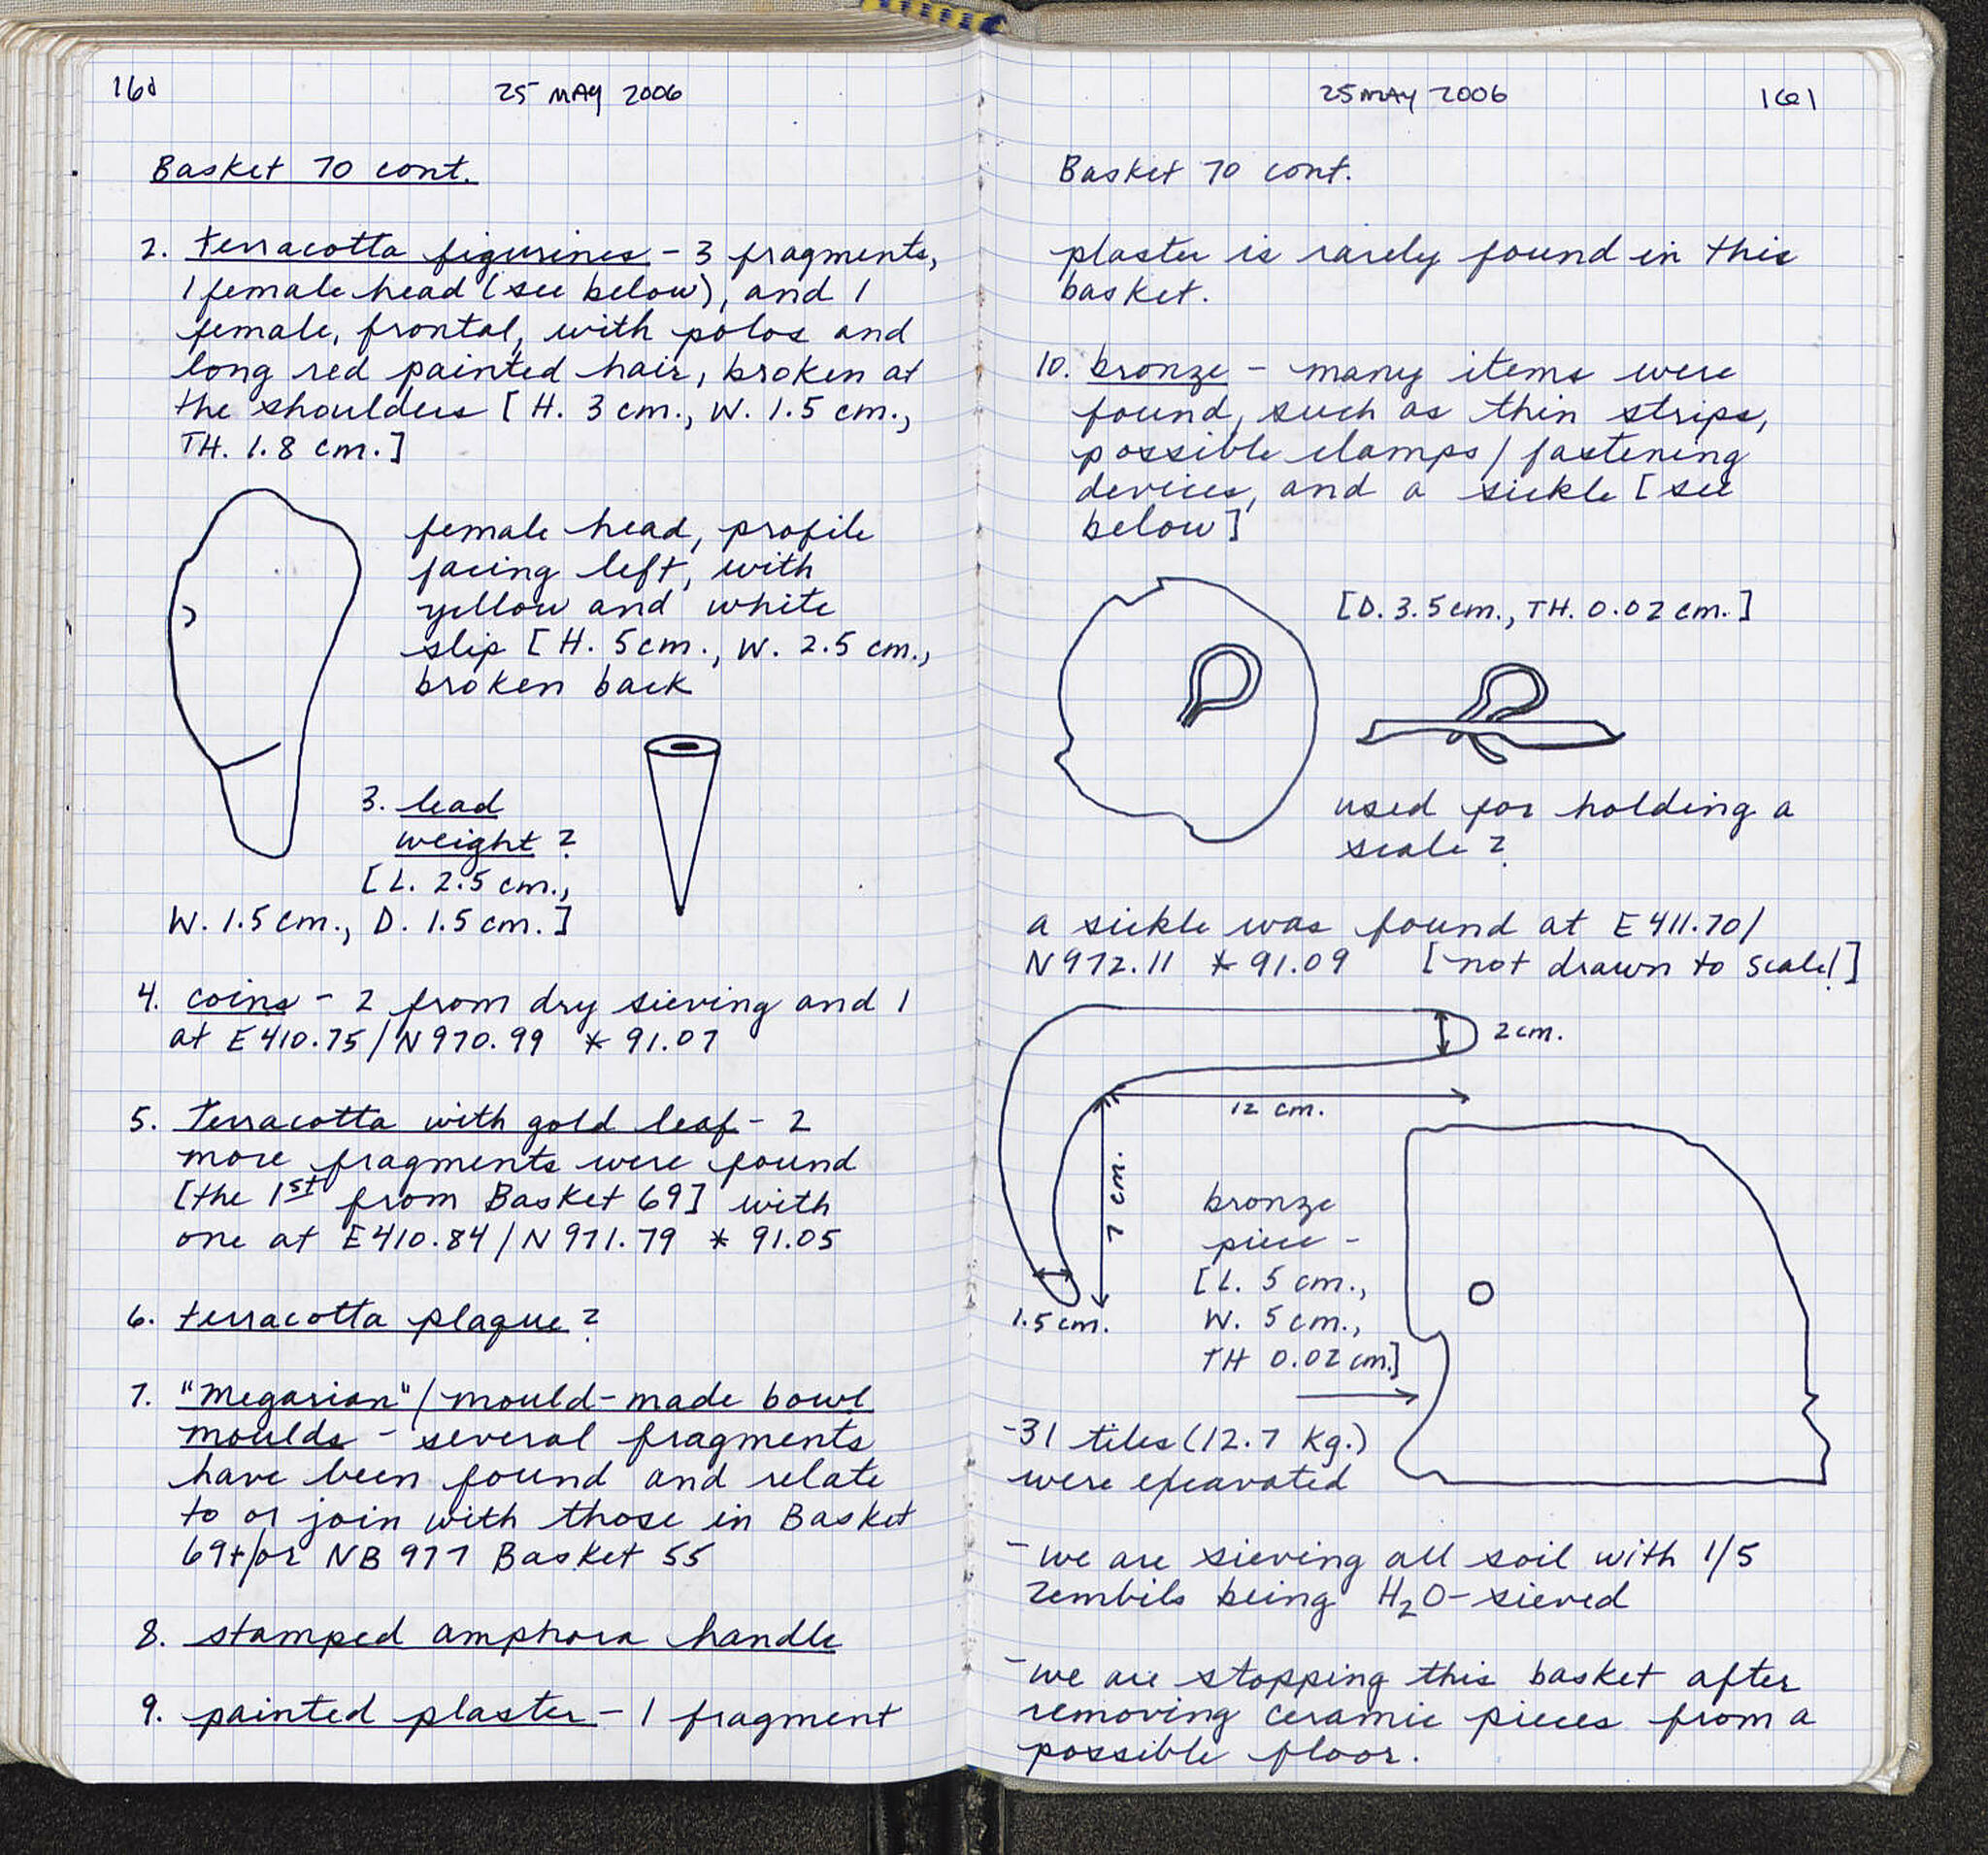 160
25 MAY 2006
Basket 70 cont.
2. terracotta figurines - 3 fragments,
1 female head (see below), and 1
female, frontal, with polos and
long red painted hair, broken at
the shoulders [H. 3 cm., W. 1.5 cm.,
TH. 1.8 cm.]
female head, profile
facing left, with
yellow and white
slip [H. 5cm., W. 2.5 cm.,
broken back
3. lead
weight?
[L. 2.5 cm.,
W. 1.5 cm., D. 1.5 cm.]
4. coins - 2 from dry sieving and 1
at E410.75/N970.99 * 91.07
5. Terracotta with gold leaf - 2
more fragments were found
[the 1st from Basket 69] with
one at E410.84/N971.79 * 91.05
6. terracotta plaque?
7. "Megarian"/mould-made bowl
moulds - several fragments
have been found and relate
to or join with those in Basket
69+/or NB 977 Basket 55
8. stamped amphora handle
9. painted plaster - 1 fragment
25 MAY 2006
161
Basket 70 cont.
plaster is rarely found in this
basket.
10. bronze - many items were
found, such as thin strips,
possible clamps/fastening
devices, and a sickle [see
below]
[D. 3.5cm., TH. 0.02 cm.]
used for holding a
scale?
a sickle was found at E411.70/
N972.11 * 91.09 [not drawn to scale!]
2cm.
12 cm.
7 cm.
1.5 cm.
bronze
piece -
[L. 5 cm.,
W. 5cm.,
TH 0.02 cm.]
-31 tiles (12.7 kg.)
were excavated
- we are sieving all soil with 1/5
zembils being H2O-sieved
- we are stopping this basket after
removing ceramic pieces from a
possible floor.